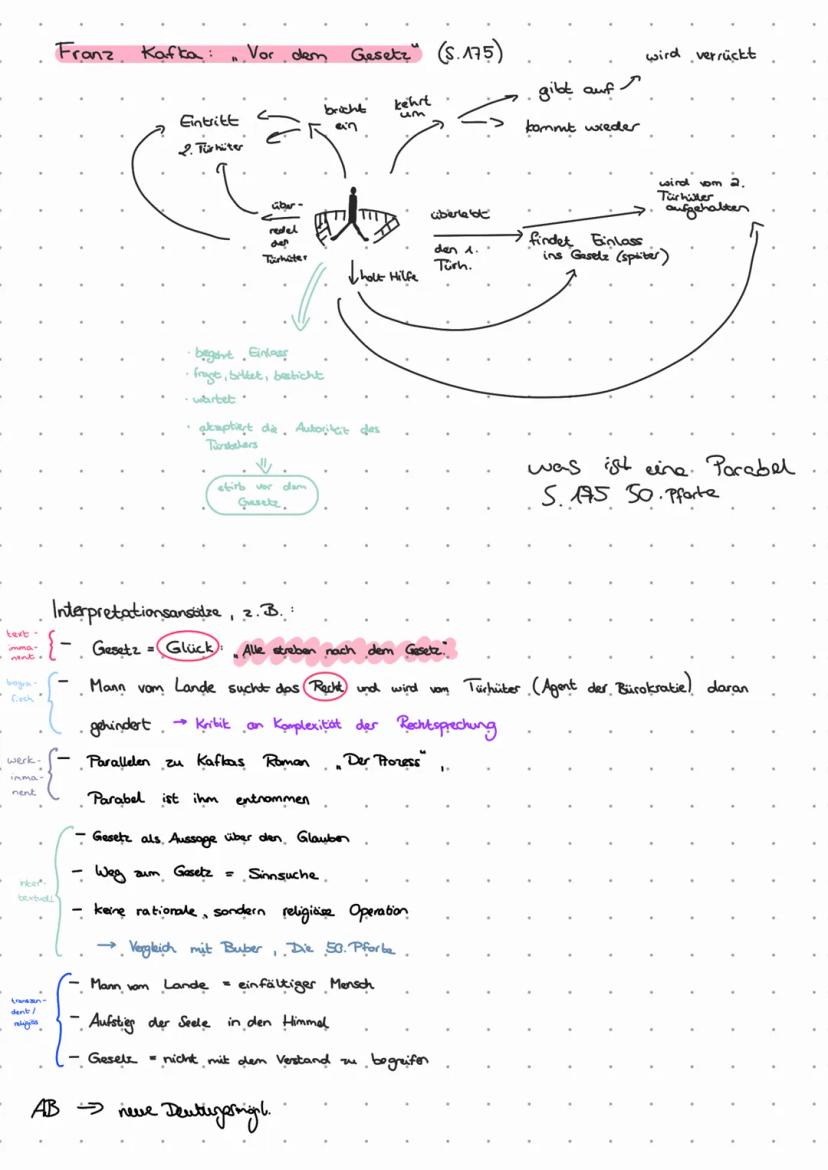 Franz Kafka: „Vor dem Gesetz" (S. 175)
wird verrückt
gibt auf
kommt wieder
kehrt
um
bricht
ein
Eintritt
2. Türhüter
über-
redet
den
Türhüter
überlebt
den 1.
Türh.
findet Einlass
ins Gesetz (später)
wird vom 2.
Türhüter
aufgehalten
holt Hilfe
· begehrt Einlass
· fragt, bittet, besticht
· wartet
· akzeptiert die Autorität des
Türstehers
stirb vor dem
Gesetz
was ist eine Parabel
S. 175 50. Pforte
Interpretationsansätze, z. B.:
text-
imma-
nent
- Gesetz = Glück: „Alle streben nach dem Gesetz."
biogra-
fisch
- Mann vom Lande sucht das Recht und wird vom Türhüter (Agent der Bürokratie) daran
gehindert → Kritik an Komplexität der Rechtsprechung
werk-
imma-
nent
- Parallelen zu Kafkas Roman „Der Prozess",
Parabel ist ihm entnommen
inter-
textuell
- Gesetz als Aussage über den Glauben
- Weg zum Gesetz = Sinnsuche
- keine rationale, sondern religiöse Operation
→ Vergleich mit Buber, Die 50. Pforte
transzen-
dent /
religiös
- Mann vom Lande = einfältiger Mensch
- Aufstieg der Seele in den Himmel
- Gesetz = nicht mit dem Verstand zu begreifen
AB → neue Deutungsmögl.